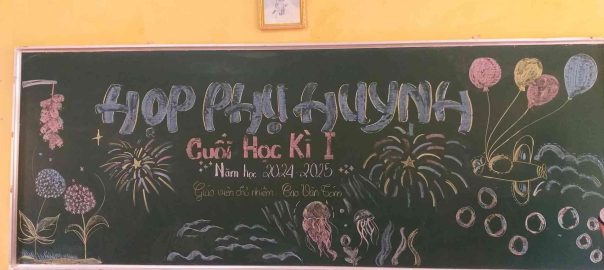 HỌP PHỤ HUYNH
Cuối Học Kì I
Năm học 2024-2025
Giáo viên chủ nhiệm: Cao Văn